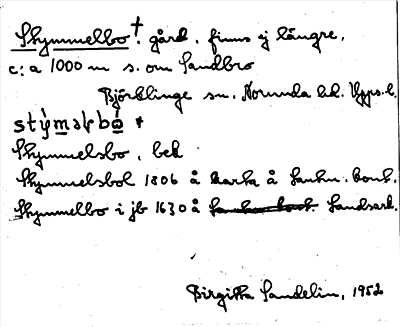 Skymmelbo†. gård. finns ej längre.
c:a 1000 m s. om Sandbro
Björklinge sn. Norunda hd. Upps. l.
Skymmelsbo, bek
Skymmelsbol 1806 å karta å lantm. kont.
Skymmelbo i jb 1630 å Landsark.
Birgitta Sandelin, 1952